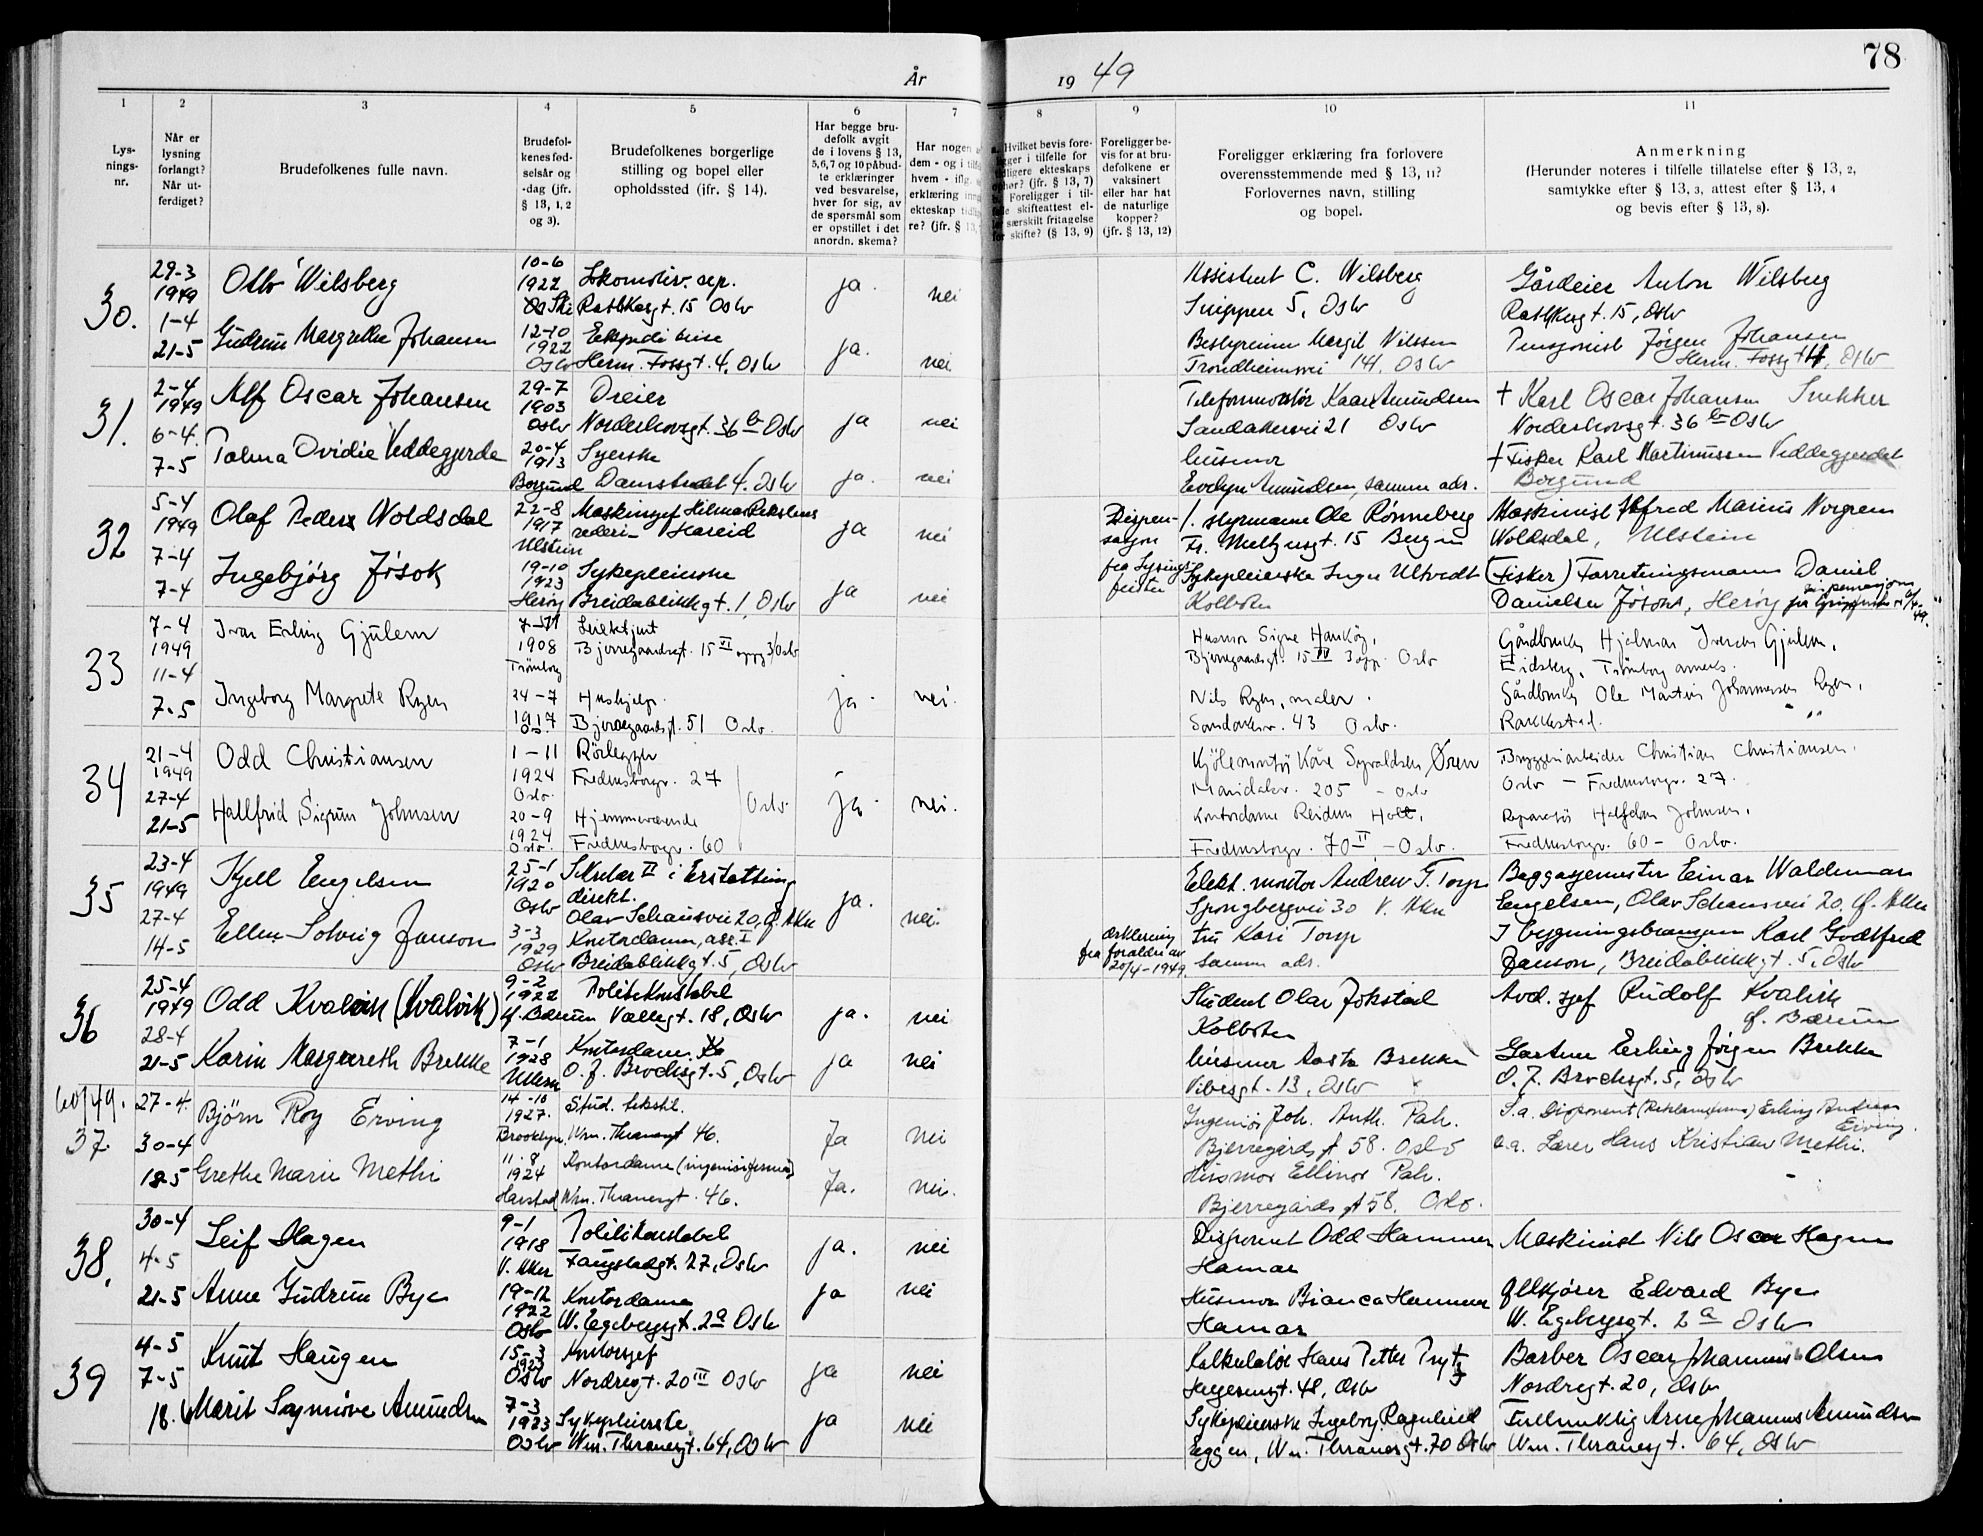 År
19 49
78
1
2
3
4
5
6
7
8
9
10
11
Lys-
nings-
nr.
Når er
lysning
forlangt?
Når ut-
ferdiget?
Brudefolkenes fulle navn.
Brudefol-
kenes fød-
selsår og
-dag (jfr.
§ 13, 1, 2
og 3).
Brudefolkenes borgerlige
stilling og bopel eller
opholdssted (jfr. § 14).
Har begge bru-
defolk avgit
de i lovens § 13,
5,6,7 og 10 påbud-
te erklæringer
ved besvarelse,
hver for sig, av
de spørsmål som
er opstillet i det
anordn. skema?
Har nogen
dem - og i
hvem - iflg.
erklæring
ekteskap
re? (jfr. § 13,
Hvilket bevis fore-
i tilfelle for
tidligere ekteskaps
ophør? (jfr. § 13, 7)
Foreligger i til-
felle skifteattest el-
ler særskilt fritagelse
for skifte? (§ 13, 9)
Foreligger be-
vis for at bru-
defolkene er
vaksinert
eller har hat
de naturlige
kopper?
(jfr. § 13, 12)
Foreligger erklæring fra forlovere
overensstemmende med § 13, 11?
Forlovernes navn, stilling
og bopel.
Anmerkning
(Herunder noteres i tilfelle tillatelse efter § 13, 2,
samtykke efter § 13, 3, attest efter § 13, 4
og bevis efter § 13, 8).
30.
29-3
1949
1-4
21-5
Otto Wilsberg
10-6
1922
Lokomotiv. rep.
Rathkesgt. 15 Oslo
ja.
nei
Assistent C. Wilsberg
Snippen 5, Oslo
Gårdeier Anton Wilsberg
Rathkesgt. 15, Oslo
Gudrun Margrethe Johansen
12-10
1922
Oslo
Ekspeditrise
Herm. Fossgt. 4, Oslo
ja.
nei
Bestyrerinne Margit Nilssen
Trondheimsvei 141, Oslo
Pensjonist Jørgen Johansen
Herm. Fossgt 4, Oslo
31.
2-4
1949
6-4.
7-5
Alf Oscar Johansen
29-7
1903
Oslo
Dreier
Norderhovsgt. 36 b Oslo
ja
nei
Telefonmontør Kaare Amundsen
Sandakervei 21 Oslo
+ Karl Oscar Johansen Snekker
Norderhovsgt. 36 b Oslo
Tolma Ovidie Veddegjerde
20-4
1913
Borgund
Syerske
Damstredet 4. Oslo
ja.
nei
Husmor
Evelyn Amundsen, samme adr.
+ Fisker Karl Martinussen Veddegjerdet
Borgund
32
5-4
1949
7-4
7-4
Olaf Peder Woldsdal
22-8
1917
Ulstein
Maskinsjef Hilmar Rekstens
rederi - Hareid
ja
nei
Dispen-
sasjon
fra lysings
frister
1. styrmann Ole Rønneberg
Fr. Meltzersgt. 15 Bergen
Maskinist Alfred Marius Norgren
Woldsdal, Ulstein
Ingebjørg Jøsok
19-10
1923
Herøy
Sykepleierske
Breidablikkgt. 1, Oslo
ja
nei
Sykepleierske Inger Ultvedt
Kolbotn
(Fisker) Forretningsmann Daniel
Danielsen Jøsok, Herøy
33
7-4
1949
11-4
7-5
Ivar Erling Gjulem
1908
Trømborg
Leilektjent
Bjerregaardsgt. 15 VI oppg 3/Oslo
Husmor Signe Hansköy,
Bjerregaardsgt. 15 IV 3 opp. Oslo
Gårdbruker Hjalmar Iversen Gjulem,
Eidsberg, Trømborg anneks.
Ingeborg Margrete Rygen
24-7
1917
Os.
Hushjelp.
Bjerregaardsgt. 51 Oslo.
ja.
nei.
Nils Rygen, maler.
Sandakerv. 43 Oslo.
Gårdbruker Ole Martin Johannesen Rygen,
Rakkestad.
34
21-4
1949
27-4
21-5
Odd Christiansen
1-11
1924
Oslo.
Rörlegger
Fredensborgv. 27
Oslo
ja.
nei.
Kjölemontör Kåre Sigvaldsen Øren
Maridalsv. 205 - Oslo
Bryggeriarbeider Christian Christiansen.
Oslo - Fredensborgv. 27.
Hallfrid Sigrun Johnsen
20-9
1924
Oslo.
Hjemmeværende
Fredensborgv. 60
Kontordame Reidun Holt,
Fredensborgv. 70 II - Oslo.
Reparatör Halfdan Johnsen.
Fredensborgv. 60 - Oslo.
35
23-4
1949
27-4
14-5
Kjell Engelsen
25-1
1920
Oslo
Sekretær II i Erstatning
direkt.
Olav Schousvei 20, Ø. Aker
ja.
nei.
Elekt. montør Andrew T. Torp
Spongbergvei 30 V. Aker
Baggasjemester Einar Waldemar
Engelsen, Olav Schousvei 20, Ø. Aker
Ellen Solveig Janson
3-3
1929
Oslo
Kontordame, ass. I
Breidablikkgt. 5, Oslo
Erklæring
fra foreldre av
20/4-1949.
Fru Kari Torp
samme adr.
I bygningsbransjen Karl Godtfred
Janson, Breidablikkgt. 5, Oslo
36
25-4
1949
28-4
21-5
Odd Kvalvik (Kvalvik)
9-2
1922
Ø. Bærum
Politikonstabel
Vallegt. 18, Oslo
ja.
nei
Student Olav Jokstad
Kolbotn
Avd. sjef Rudolf Kvalvik
Ø. Bærum
Karin Margareth Brekke
7-1
1928
Ullern
Kontordame
O. J. Brochsgt. 5, Oslo
ja
nei
Husmor Aasta Brekke
Vibesgt. 13, Oslo
Gartner Erling Jørgen Brekke
O. J. Brochsgt. 5, Oslo
60/49.
37.
27-4.
30-4
18-5
Bjørn Roy Erving
14-10
1927.
Brooklyn
Stud. tekstil.
Wm. Thranesgt 46.
Ja
Nei
Ingeniör Joh. Anth. Pah.
Bjerregårds gt 58. Oslo
S.a. Disponent (Reklamefirma) Erling Andreas
Erving.
Grethe Marie Methi
11.8
1924
Harstad
Kontordame (ingeniörfirma)
Wm. Thranesgt. 46.
Ja.
Nei.
Husmor Ellinor Pah.
Bjerregårds gt 58. Oslo.
e.a. Lærer Hans Kristian Methi.
38.
30-4
4-5
21-5
Leif Hagen
9-1
1918
V. Aker
Politikonstabel
Fougstadgt. 27, Oslo
ja.
nei
Disponent Odd Hammer
Hamar
Maskinist Nils Oscar Hagen
Anne Gudrun Bye
19-12
1922
Oslo
Kontordame
W. Egebergsgt. 2a Oslo
ja
nei
Husmor Bianca Hammer
Hamar
Ølkjører Edvard Bye
W. Egebergsgt. 2a Oslo
39
4-5
7-5
18.6
Knut Haugen
15-3
1923
Oslo
Kontorsjef
Nordregt. 20 III Oslo
ja
nei
Kalkulatør Hans Petter Prytz
Hegermsgt. 48, Oslo
Barber Oscar Johannes Olsen
Nordregt. 20, Oslo
Marit Synnøve Amundsen
7-3
1923
Oslo
Sykepleierske
Wm. Thranesgt. 64, Oslo
ja
nei
Sykepleierske Ingeborg Ragnhild
Eggen, Wm. Thranesgt. 70 Oslo
Fullmektig Arne Johannes Amundsen
Wm. Thranesgt. 64, Oslo